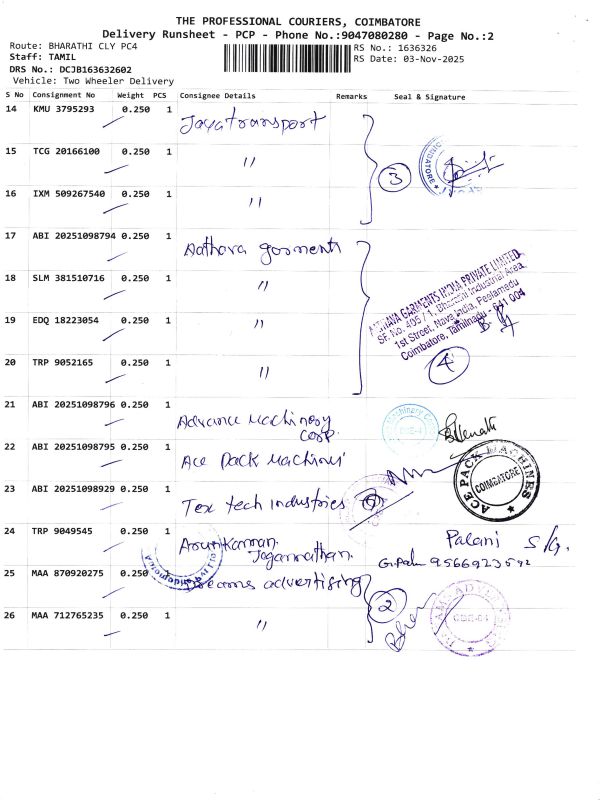 THE PROFESSIONAL COURIERS, COIMBATORE
Delivery Runsheet - PCP - Phone No.:9047080280 - Page No.:2
Route: BHARATHI CLY PC4
RS No.: 1636326
Staff: TAMIL
RS Date: 03-Nov-2025
DRS No.: DCJB163632602
Vehicle: Two Wheeler Delivery
S No Consignment No Weight PCS Consignee Details Remarks Seal & Signature
14 KMU 3795293 0.250 1 Jayatransport
15 TCG 20166100 0.250 1 〃
3
COIMBATORE
16 IXM 509267540 0.250 1 〃
17 ABI 20251098794 0.250 1 Aathava garments
18 SLM 381510716 0.250 1 〃
AATHAVA GARMENTS INDIA PRIVATE LIMITED
SF. No. 405 / 1, Bharathi Industrial Area,
1st Street, Nava India, Peelamedu
Coimbatore, Tamilnadu - 641 004
19 EDQ 18223054 0.250 1 〃
20 TRP 9052165 0.250 1 〃
4
21 ABI 20251098796 0.250 1 Advance Machinery
Corp.
22 ABI 20251098795 0.250 1 Ace Pack Machines
ACE PACK MACHINES
COIMBATORE
23 ABI 20251098929 0.250 1 Tex tech industries
24 TRP 9049545 0.250 1 Arunkannan
Jagannathan
Palani S/G.
G.Palni 9566923592
25 MAA 870920275 0.250 1 Dreams advertising
2
26 MAA 712765235 0.250 1 〃